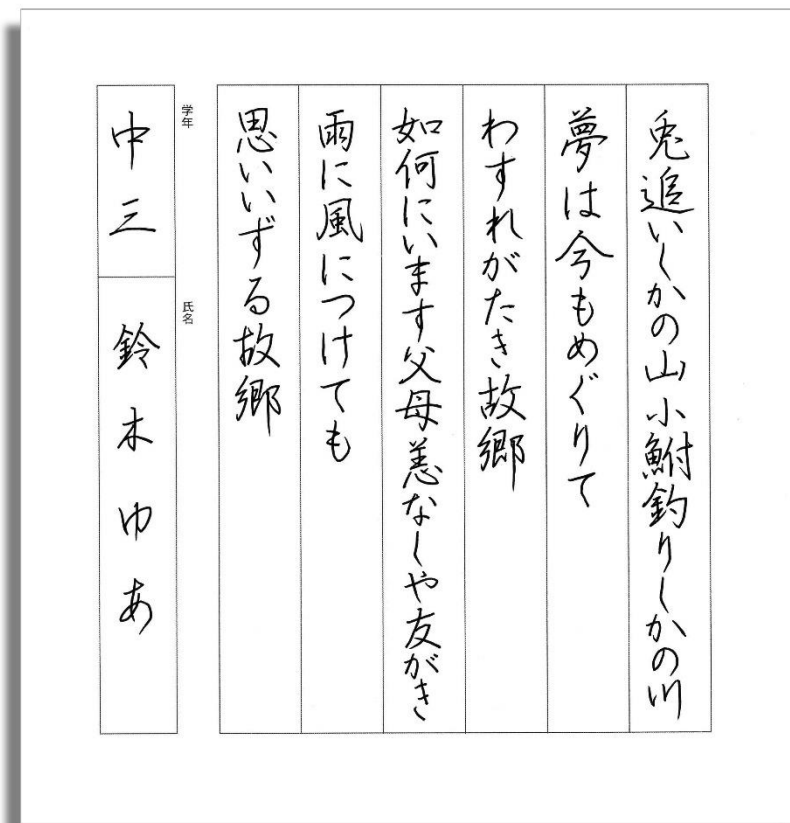 兎追いしかの山小鮒釣りしかの川
夢は今もめぐりて
わすれがたき故郷
如何にいます父母恙なしや友がき
雨に風につけても
思いいずる故郷
学年
中三
氏名
鈴木ゆあ